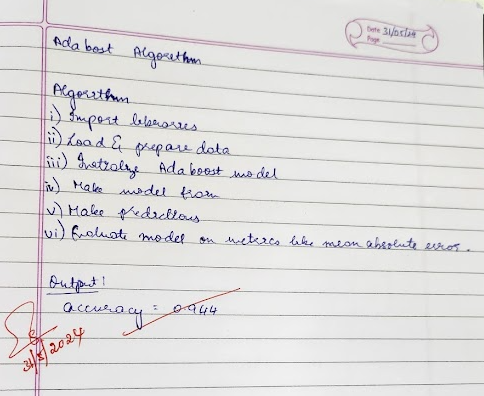 Date 31/05/24
Page
Adabost Algorethm
Algorethm
i) Import liberarres
ii) Load & prepare data
iii) Inetialize Adaboost model
iv) Make model from
v) Make predrctions
vi) Evaluate model on metercs like mean absolute error.
Output:
accuracy = 0.944
31/5/2024